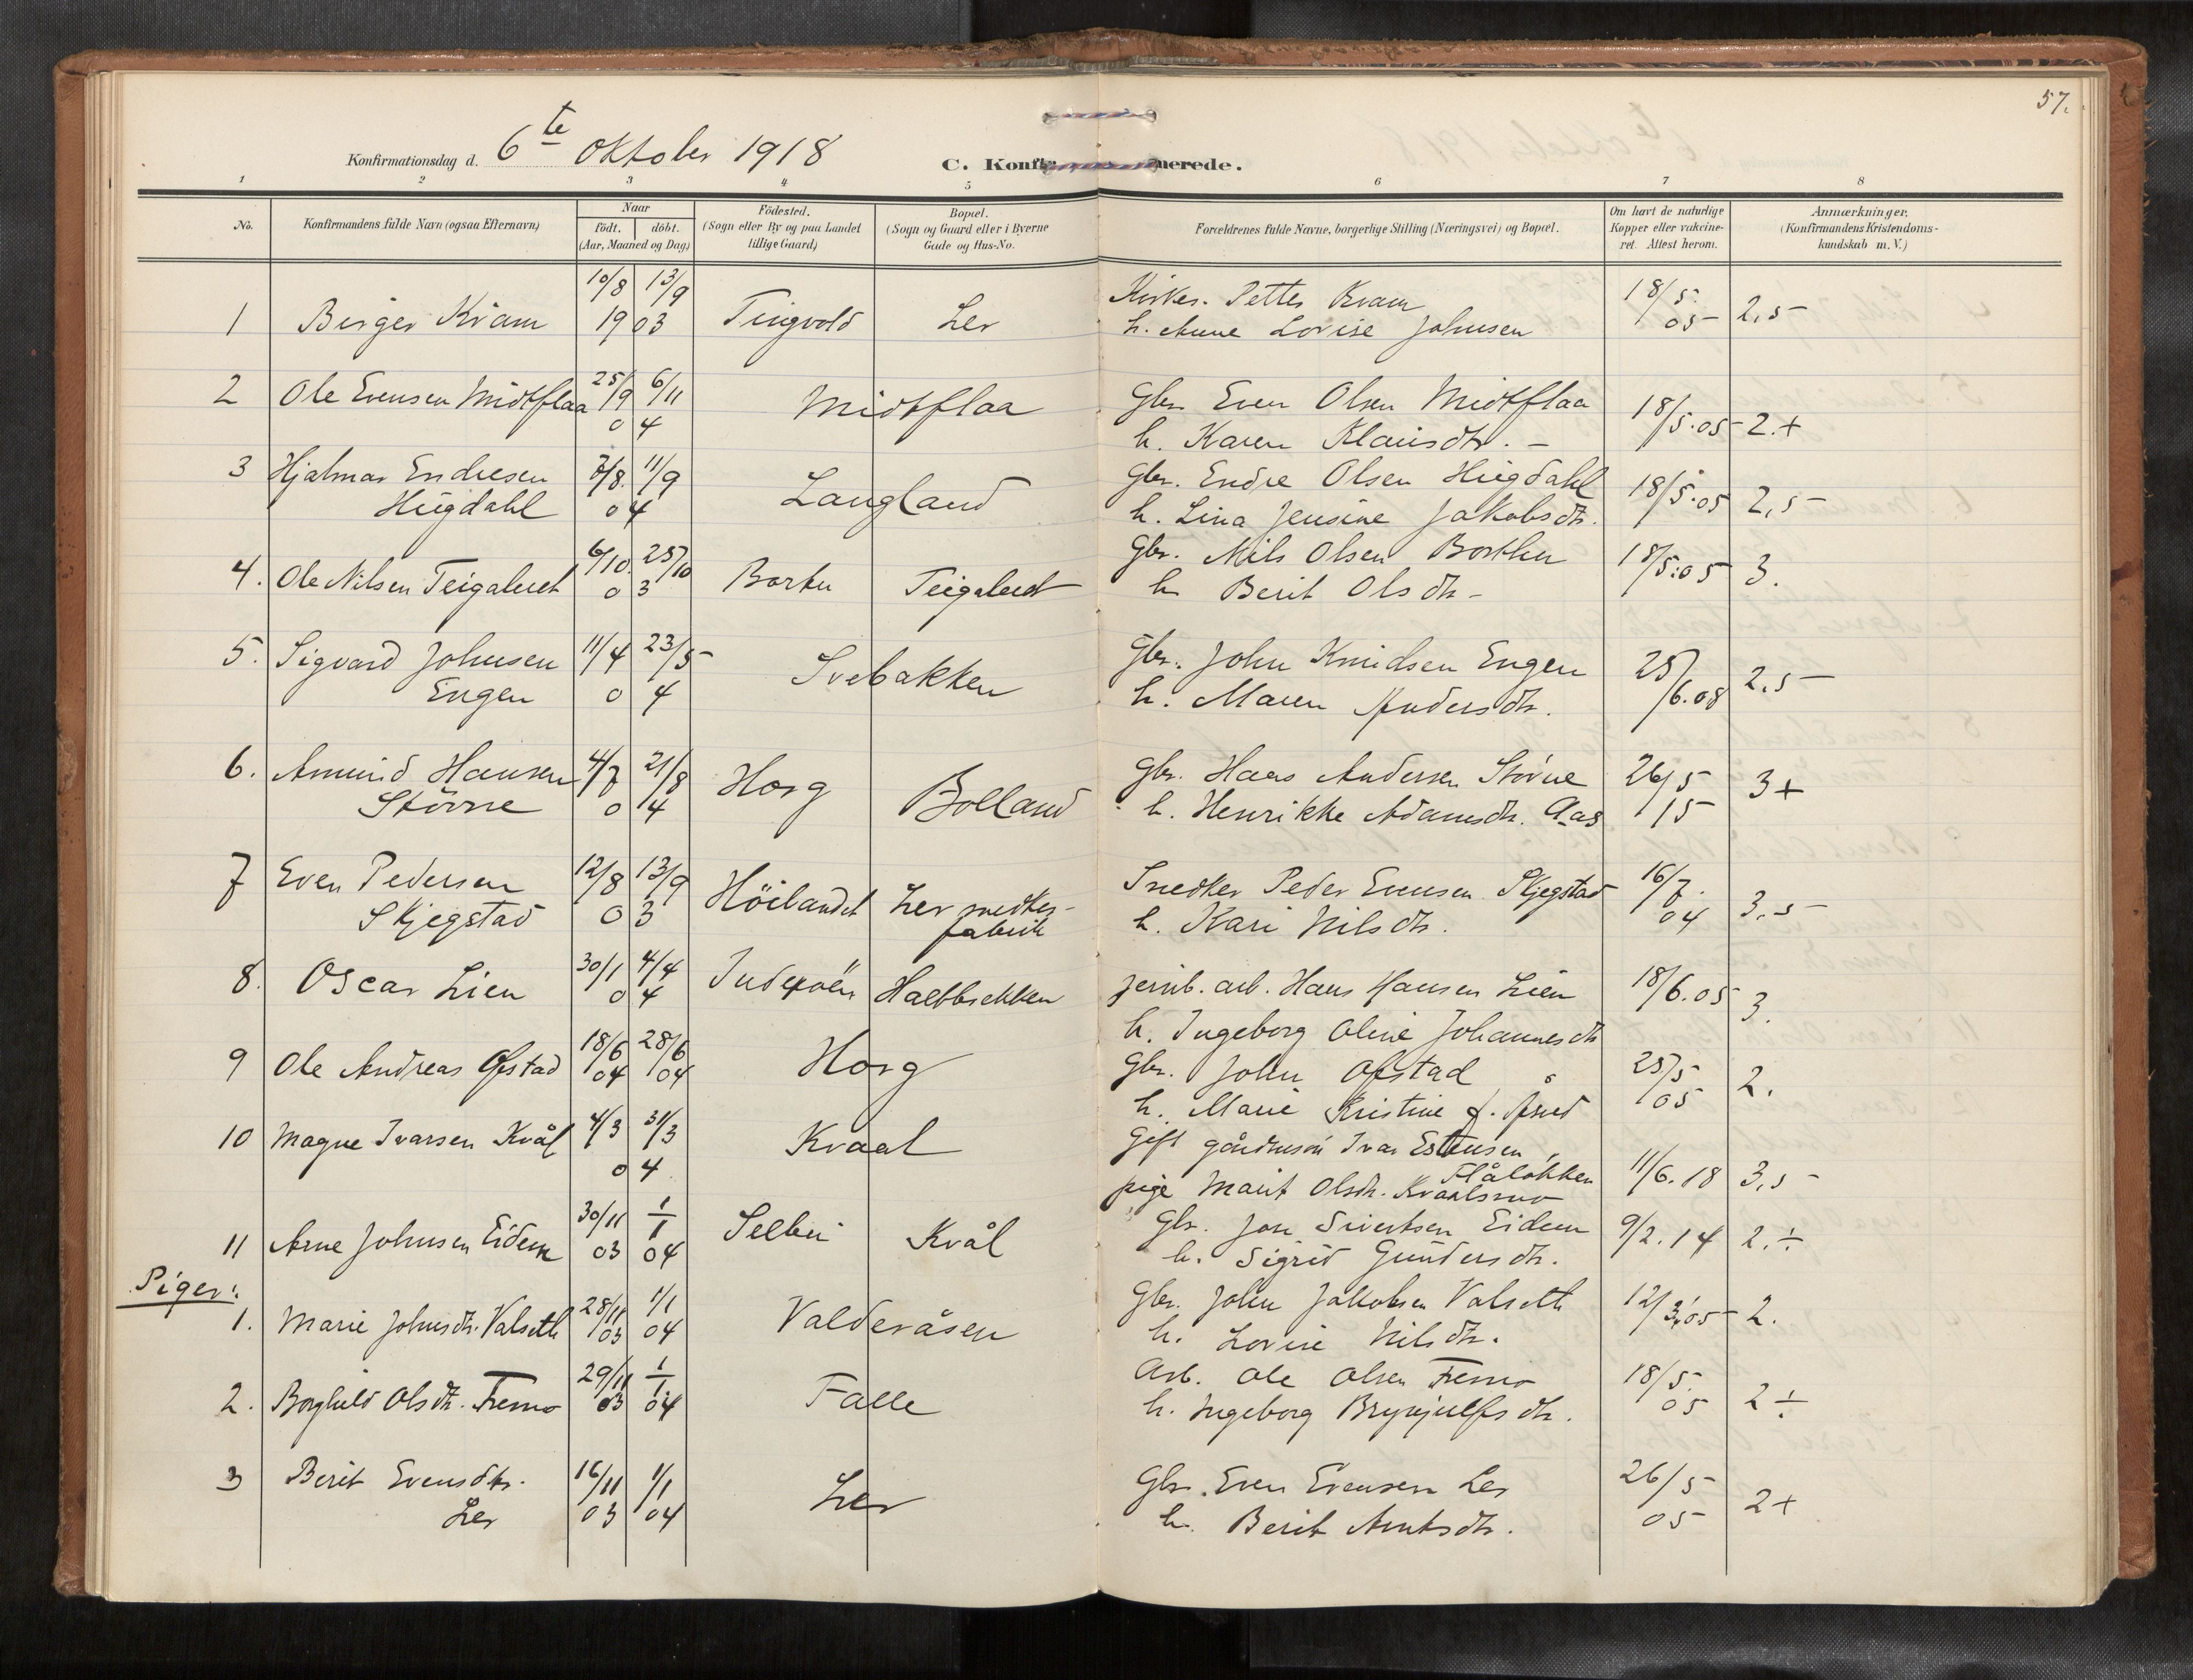 57.
Konfirmationsdag d. 6te Oktober 1918
C. Konfir merede.
1 2 3 4 5 6 7 8
No. Konfirmandens fulde Navn (ogsaa Efternavn) Naar födt. döbt. (Aar, Maaned og Dag) Födested. (Sogn eller By og paa Landet tillige Gaard) Bopæl. (Sogn og Gaard eller i Byerne Gade og Hus-No. Forældrenes fulde Navne, borgerlige Stilling (Næringsvei) og Bopæl. Om havt de naturlige Kopper eller vakcineret. Attest herom. Anmærkninger. (Konfirmandens Kristendomskundskab m. V.)
10/8 13/9 Kirkes. Petter Kvam 18/5.
1 Birger Kvam 1903 Tingvold Ler h. Anne Lovise Johnsen 05 2,5
2 Ole Evensen Midtflaa 25/9 6/11 Midtflaa Gbr. Even Olsen Midtflaa 18/5.05 2.+
04 h. Karen Klausdtr. -
3 Hjalmar Endresen 7/8. 11/9 Langland Gbr. Endre Olsen Hugdahl 18/5.05 2,5
Hugdahl 04 h. Lina Jensine Jakobsdtr.
4. Ole Nilsen Teigaleret 6/10. 25/10 Borten Teigaleret Gbr. Nils Olsen Borthen 18/5.05 3.
03 h Berit Olsdtr -
5. Sigvard Johnsen 11/4 23/5 Svebakken Gbr. John Knudsen Engen 25/6.08 2.5
Engen 04 h. Maren Andersdtr.
6. Amund Hansen 4/7 21/8 Horg Bolland Gbr. Hans Andersen Störne 26/5 3+
Störne 04 h. Henrikke Adamsdtr. Aas 15
7 Even Pedersen 12/8 13/9 Höilandet Ler snedker- Snedker Peder Evensen Skjegstad 16/7. 3.5
Skjegstad 03 fabrik h. Kari Nilsdtr. 04
8. Oscar Lien 30/1 4/4 Inderöen Halbbekken jernb. arb. Hans Hansen Lien 18/6.05 3.
04 h. Ingeborg Oline Johannesdtr
9 Ole Andreas Ofstad 18/6 28/6 Horg Gbr. John Ofstad 25/5 2.
04 04 h. Marie Kristine f. 05
10 Magne Ivarsen Kvål 4/3 31/3 Kvaal Gift gårdmsön Ivar Estensen
04 Flåløkken 11/6.18 3,5
pige Marit Olsdtr. Kvaalsmo
11 Arne Johnsen Eidem 30/11 1/1 Selbu Kvål Gbr. Jon Sivertsen Eidem 9/2.14 2.÷
03 04 h. Sigrid Gundersdtr.
Piger:
1. Marie Johnsdtr. Valseth 28/11 1/1 Valderåsen Gbr. John Jakobsen Valseth 12/3.05 2.
03 04 h. Lovise Nilsdtr.
2. Borghild Olsdtr. Fremo 29/11 1/1 Falle Arb. Ole Olsen Fremo 18/5. 2÷
03 04 h. Ingeborg Brynjulfsdtr. 05
3 Berit Evensdtr. 16/11 1/1 Ler Gbr. Even Evensen Ler 26/5 2+
Ler 03 04 h. Berit Arntsdtr. 05